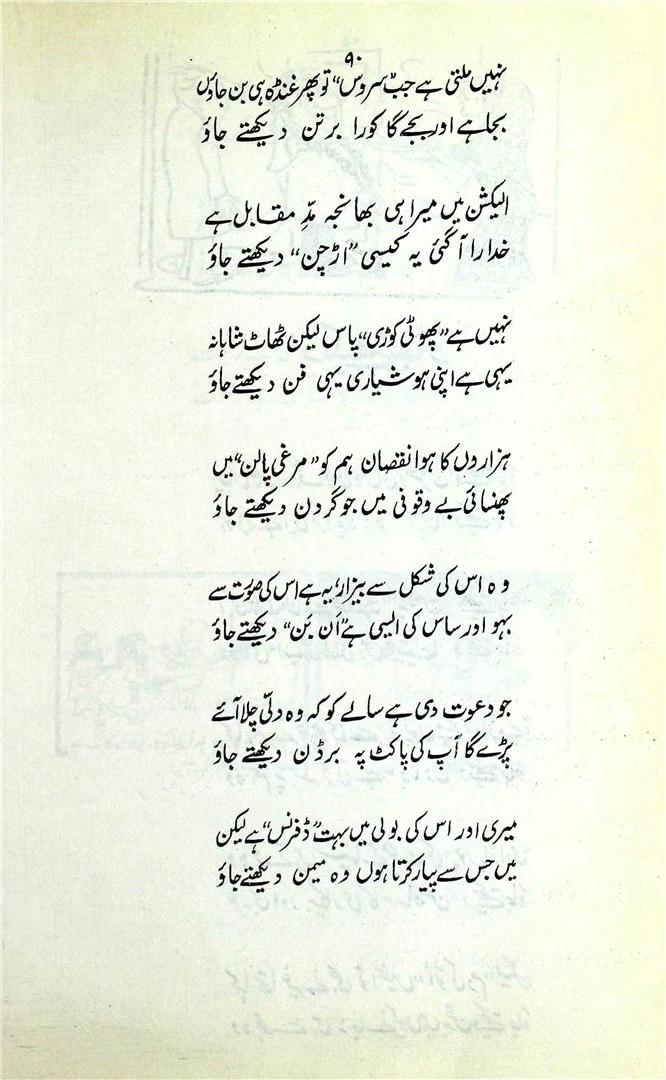 ۹۰
نہیں ملتی ہے جب "سروس" تو پھر غنڈہ ہی بن جاؤں
بجا ہے اور بجے گا کورا برتن دیکھتے جاؤ
الیکشن میں میرا ہی بھانجہ مدِّ مقابل ہے
خدارا آ گئی یہ کیسی "اڑچن" دیکھتے جاؤ
نہیں ہے "پھوٹی کوڑی" پاس لیکن ٹھاٹ شاہانہ
یہی ہے اپنی ہوشیاری یہی فن دیکھتے جاؤ
ہزاروں کا ہوا نقصان ہم کو "مرغی پالن" میں
پھنسائی بے وقوفی میں جو گردن دیکھتے جاؤ
وہ اس کی شکل سے بیزار یہ ہے اس کی صورت سے
بہو اور ساس کی ایسی ہے "اَن بَن" دیکھتے جاؤ
جو دعوت دی ہے سالے کو کہ وہ دلّی چلا آئے
پڑے گا آپ کی پاکٹ پہ برڈن دیکھتے جاؤ
میری اور اس کی بولی میں بہت "ڈفرنس" ہے لیکن
میں جس سے پیار کرتا ہوں وہ میمن دیکھتے جاؤ